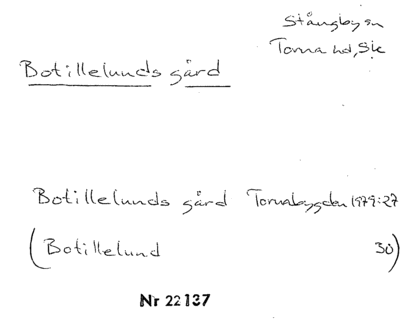 Stångby sn
Torna hd, Sk
Botillelunds gård
Botillelunds gård Tornabygden 1979:27
(Botillelund 30)
Nr 22137